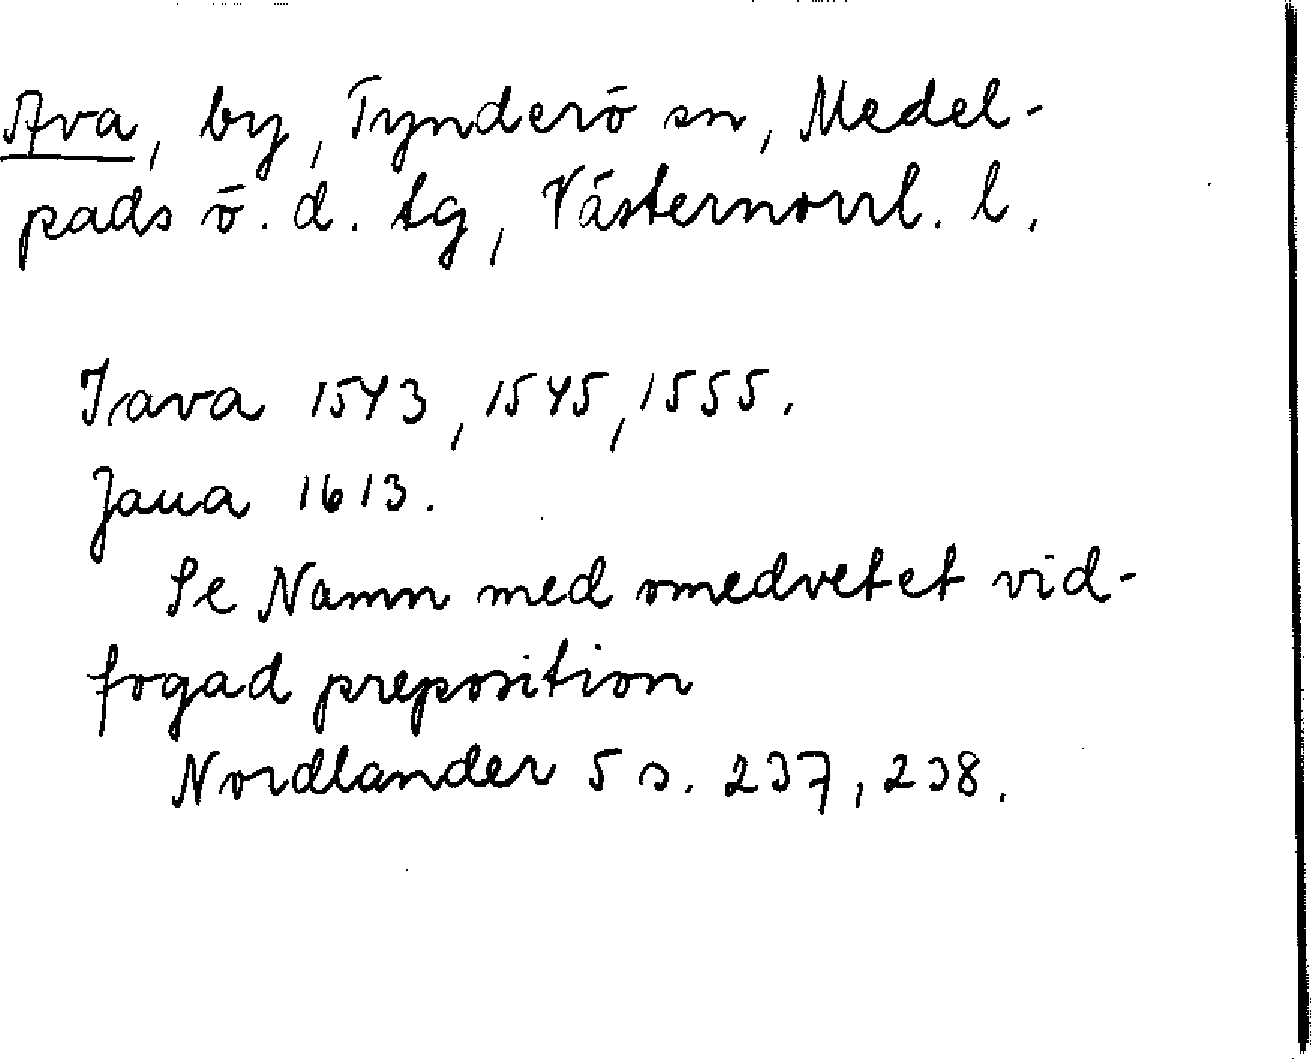 Ava, by, Tynderö sn, Medel-
pads ö. d. tg, Västernorrl. l.
Iava 1543, 1545, 1555.
Jaua 1613.
Se Namn med omedvetet vid-
fogad preposition
Nordlander 5 s. 237, 238.